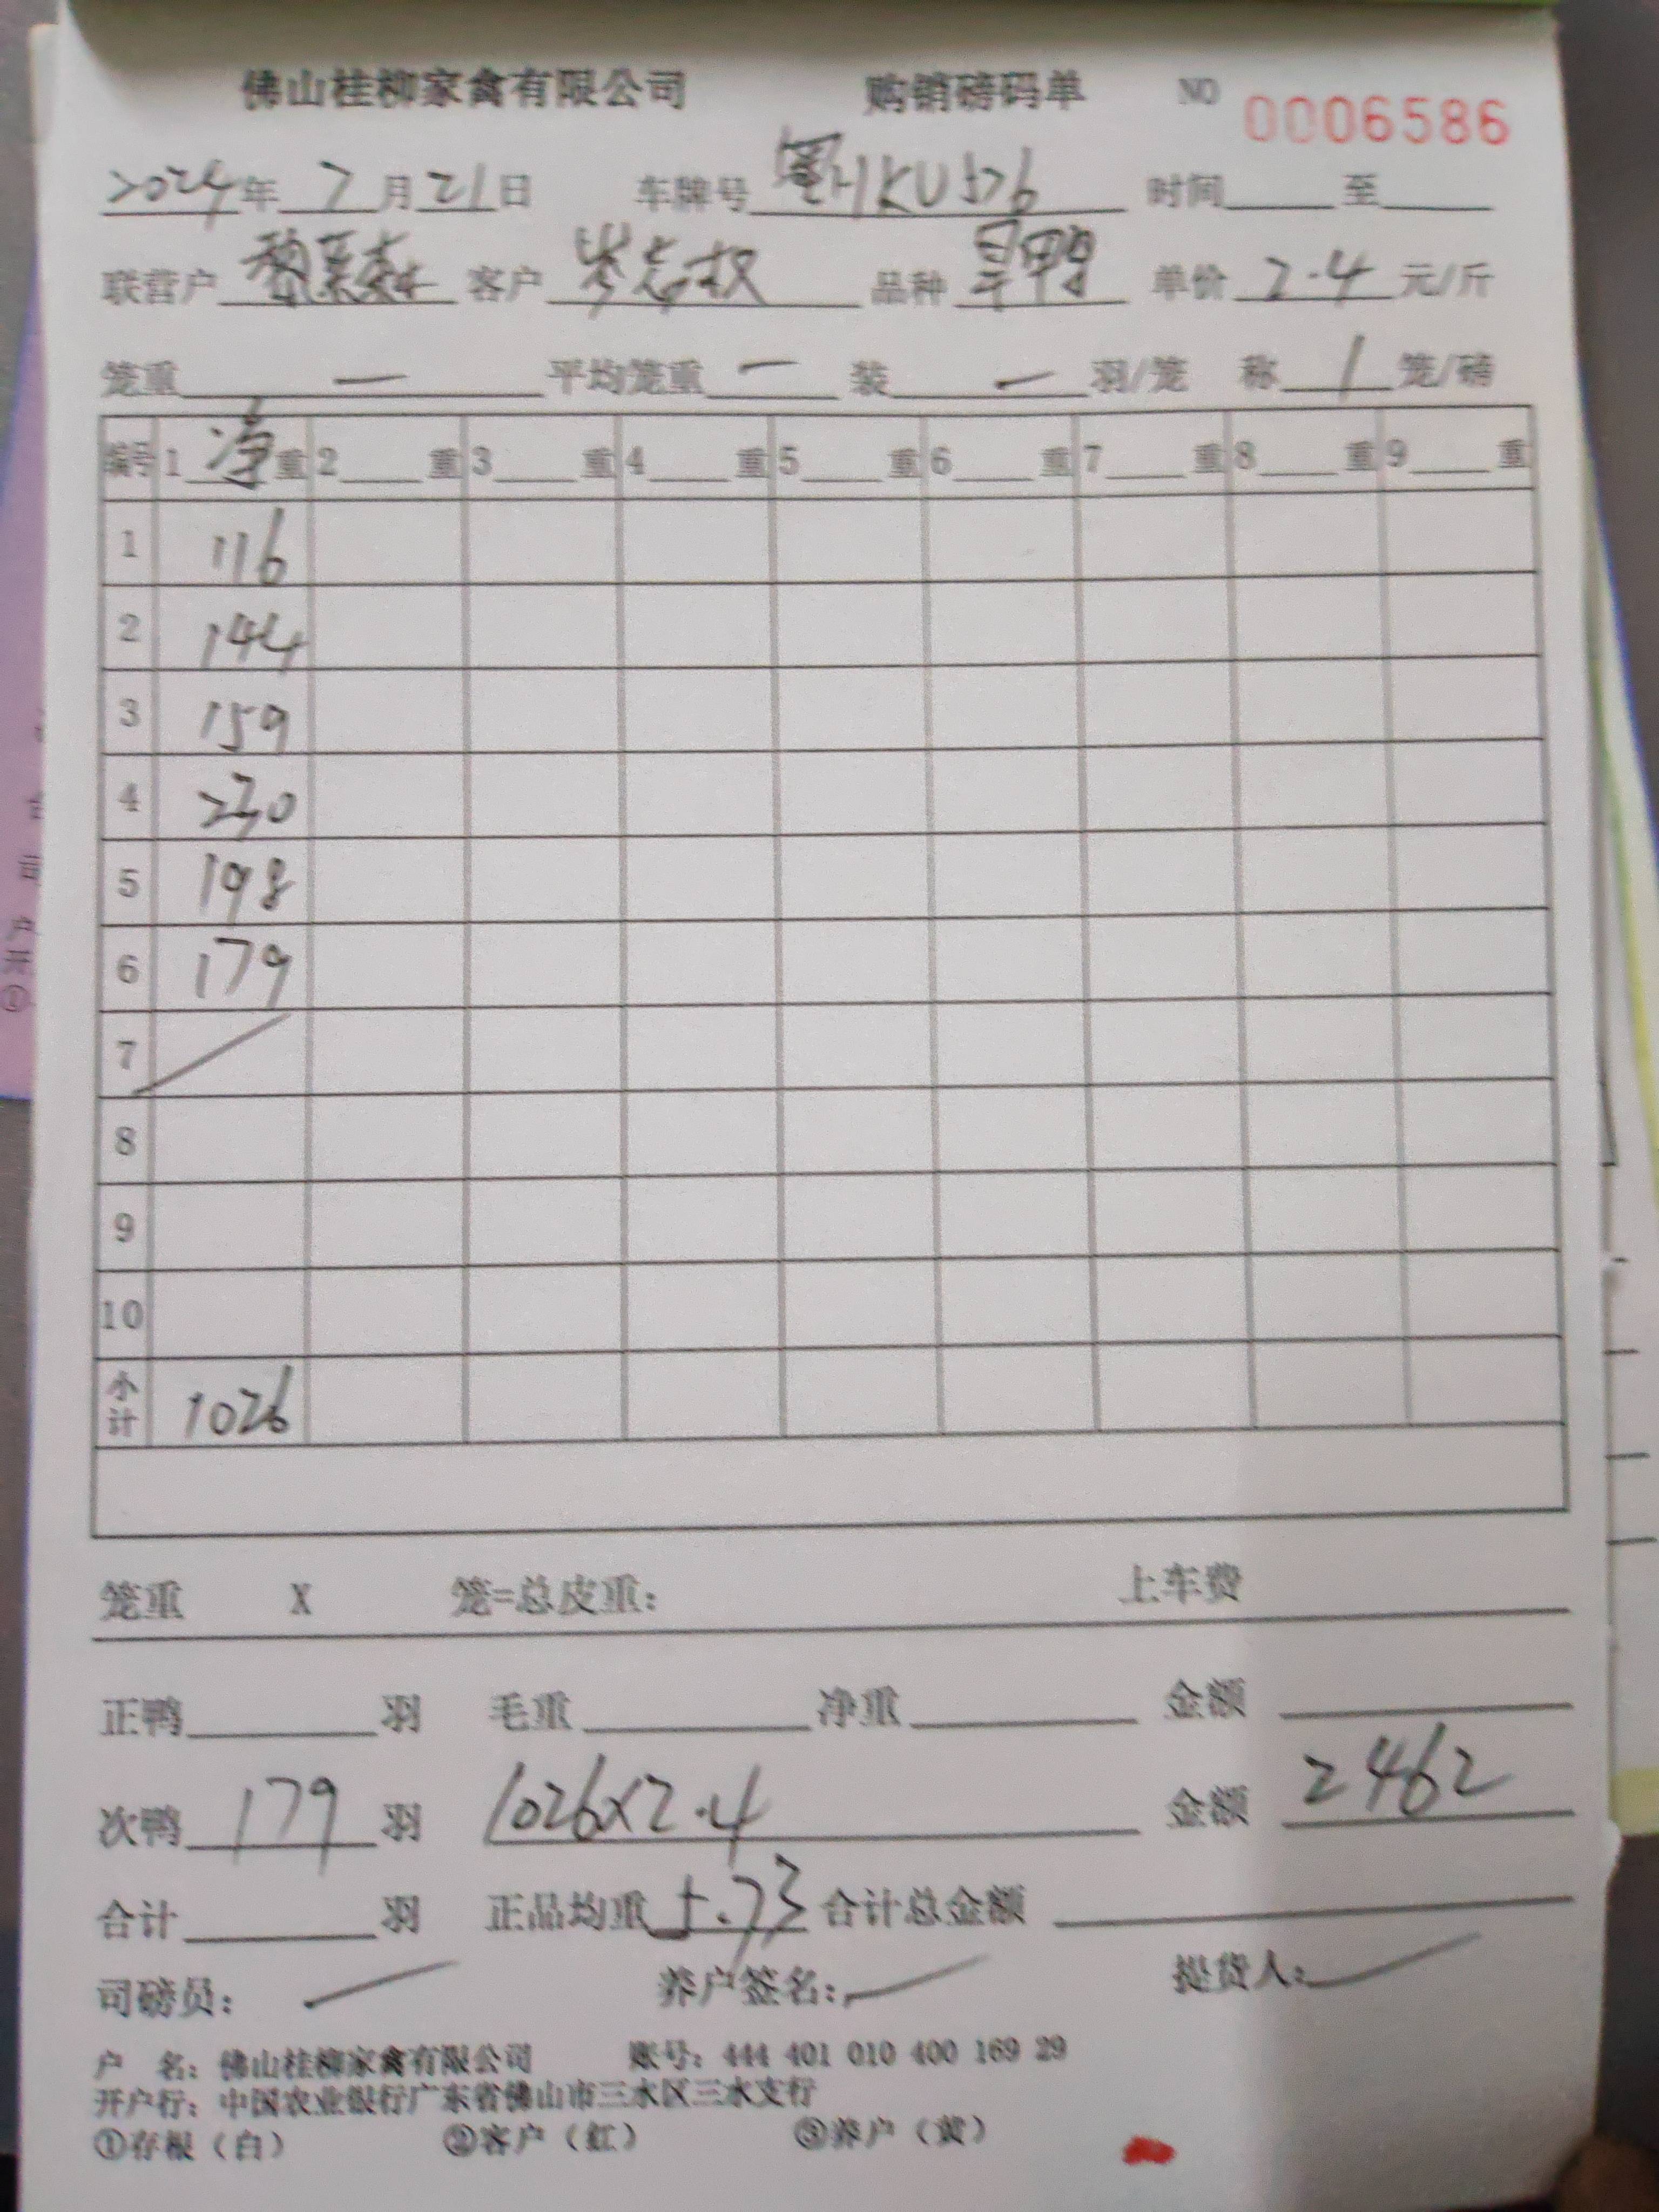 佛山桂柳家禽有限公司 购销磅码单 NO 0006586
2024年 7月21日 车牌号 粤HKU576 时间 至
联营户 客户 岑志权 品种 旱鸭 单价 2.4 元/斤
笼重 — 平均笼重 — 装 — 羽/笼 称 1 笼/磅
编号 1 净重 2 重 3 重 4 重 5 重 6 重 7 重 8 重 9 重
1 116
2 144
3 159
4 230
5 198
6 179
7
8
9
10
小计 1026
笼重 X 笼=总皮重: 上车费
正鸭 羽 毛重 净重 金额
次鸭 179 羽 1026×2.4 金额 2462
合计 羽 正品均重 5.73 合计总金额
司磅员: 养户签名: 提货人:
户 名: 佛山桂柳家禽有限公司 账号: 444 401 010 400 169 29
开户行: 中国农业银行广东省佛山市三水区三水支行
①存根(白) ②客户(红) ③养户(黄)